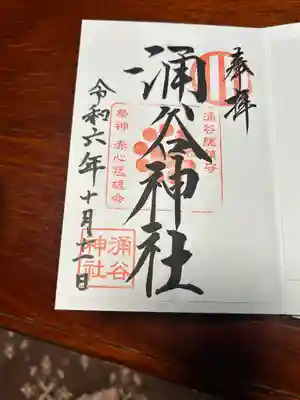 奉拝
涌谷総鎮守
涌谷神社
祭神 赤心猛雄命
令和六年十月十二日
涌谷
神社